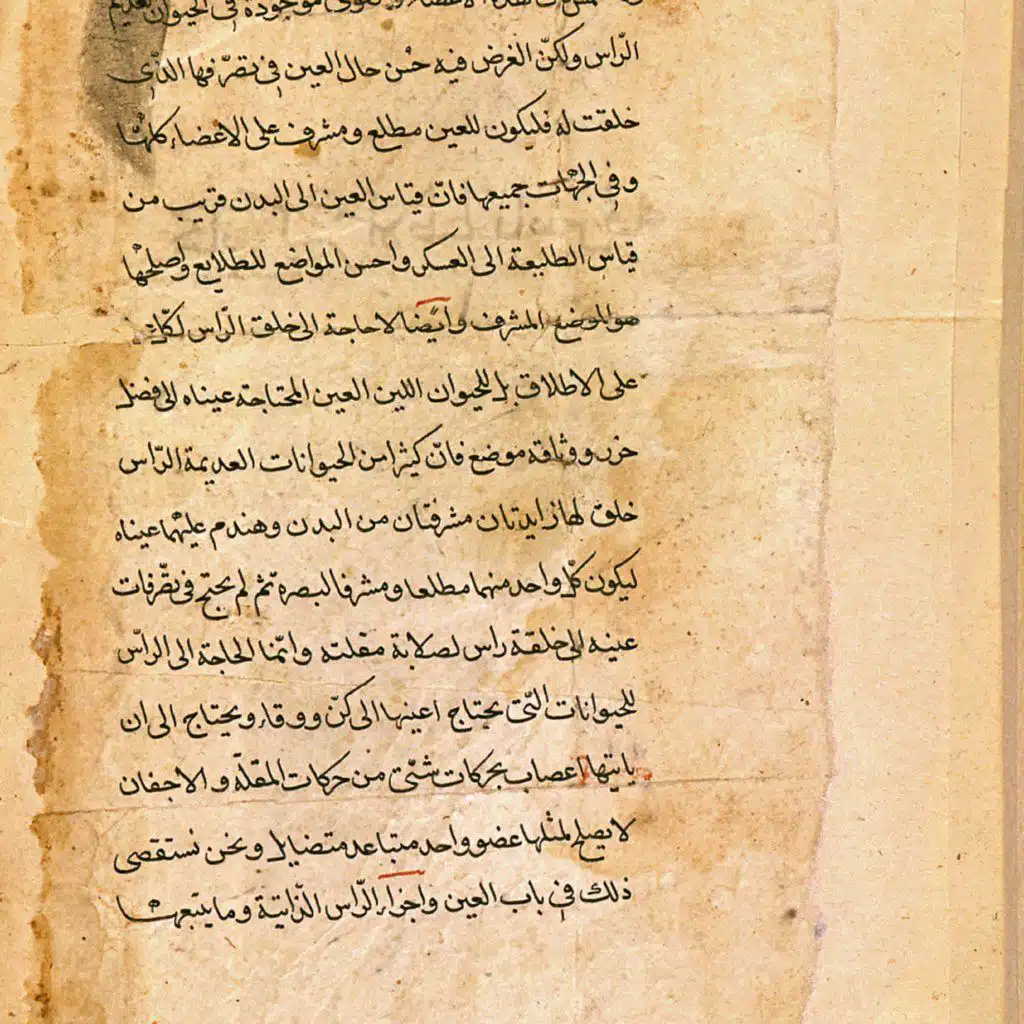 موجودة في الحيوان العديم
الرّاس ولكنّ الغرض فيه حسن حال العين في تصرّفها الذّي
خلقت له فليكون للعين مطلع ومشرف على الاعضاء كلها
وفي الجهات جميعها فانّ قياس العين الى البدن قريب من
قياس الطليعة الى العسكر واحسن المواضع للطلايع واصلحها
هو الموضع المشرف وايضا لا حاجة الى خلق الرّاس لكل
على الاطلاق بل للحيوان اللين العين المحتاجة عيناه الى فضل
حرز ووثاقة موضع فانّ كثيرا من الحيوانات العديمة الرّاس
خلق لها زايدتان مشرفتان من البدن وهندم عليهما عيناه
ليكون كلّ واحد منهما مطلعا ومشرفا لبصره ثمّ لم يحتج في تصّرفات
عينه الى خلقة راس لصلابة مقلته وانّما الحاجة الى الرّاس
للحيوانات التّي يحتاج اعينها الى كنّ ووقاء ويحتاج الى ان
ياتيها اعصاب بحركات شتّى من حركات المقلّة والاجفان
لا يصلح لمثلها عضو واحد متباعد متضايل ونحن نستقصى
ذلك في باب العين واجزاء الرّاس الذّاتية وما يتبعها